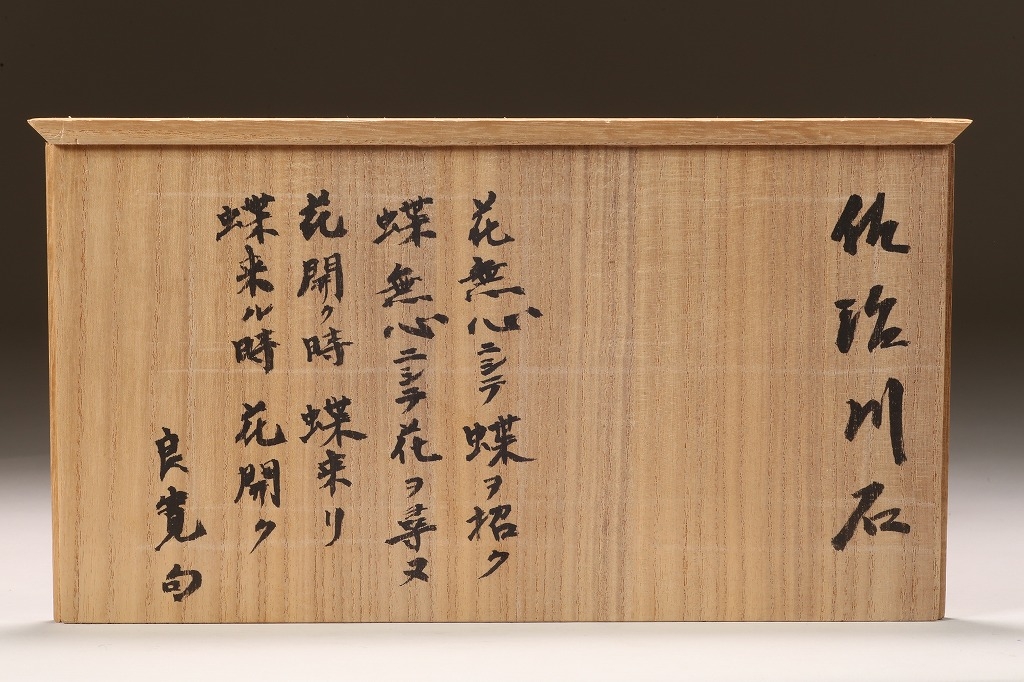 佐治川石
花無心ニシテ蝶ヲ招ク
蝶無心ニシテ花ヲ尋ヌ
花開ク時 蝶来リ
蝶来ル時 花開ク
良寛句